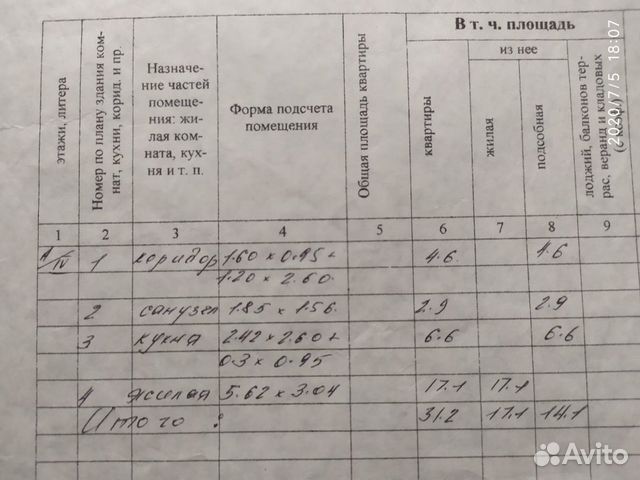 В т. ч. площадь
из нее
этажи, литера
Номер по плану здания ком-
нат, кухни, корид. и пр.
Назначе-
ние частей
помеще-
ния: жи-
лая ком-
ната, кух-
ня и т. п.
Форма подсчета
помещения
Общая площадь квартиры
квартиры
жилая
подсобная
лоджий, балконов тер-
рас, веранд и кладовых
1 2 3 4 5 6 7 8 9
А/IV 1 коридор 1.60 х 0.95 + 4.6 4.6
1.20 х 2.60
2 санузел 1.85 х 1.56 2.9 2.9
3 кухня 2.42 х 2.60 + 6.6 6.6
0.3 х 0.95
4 жилая 5.62 х 3.04 17.1 17.1
Итого: 31.2 17.1 14.1
2020/7/5 18:07
Avito